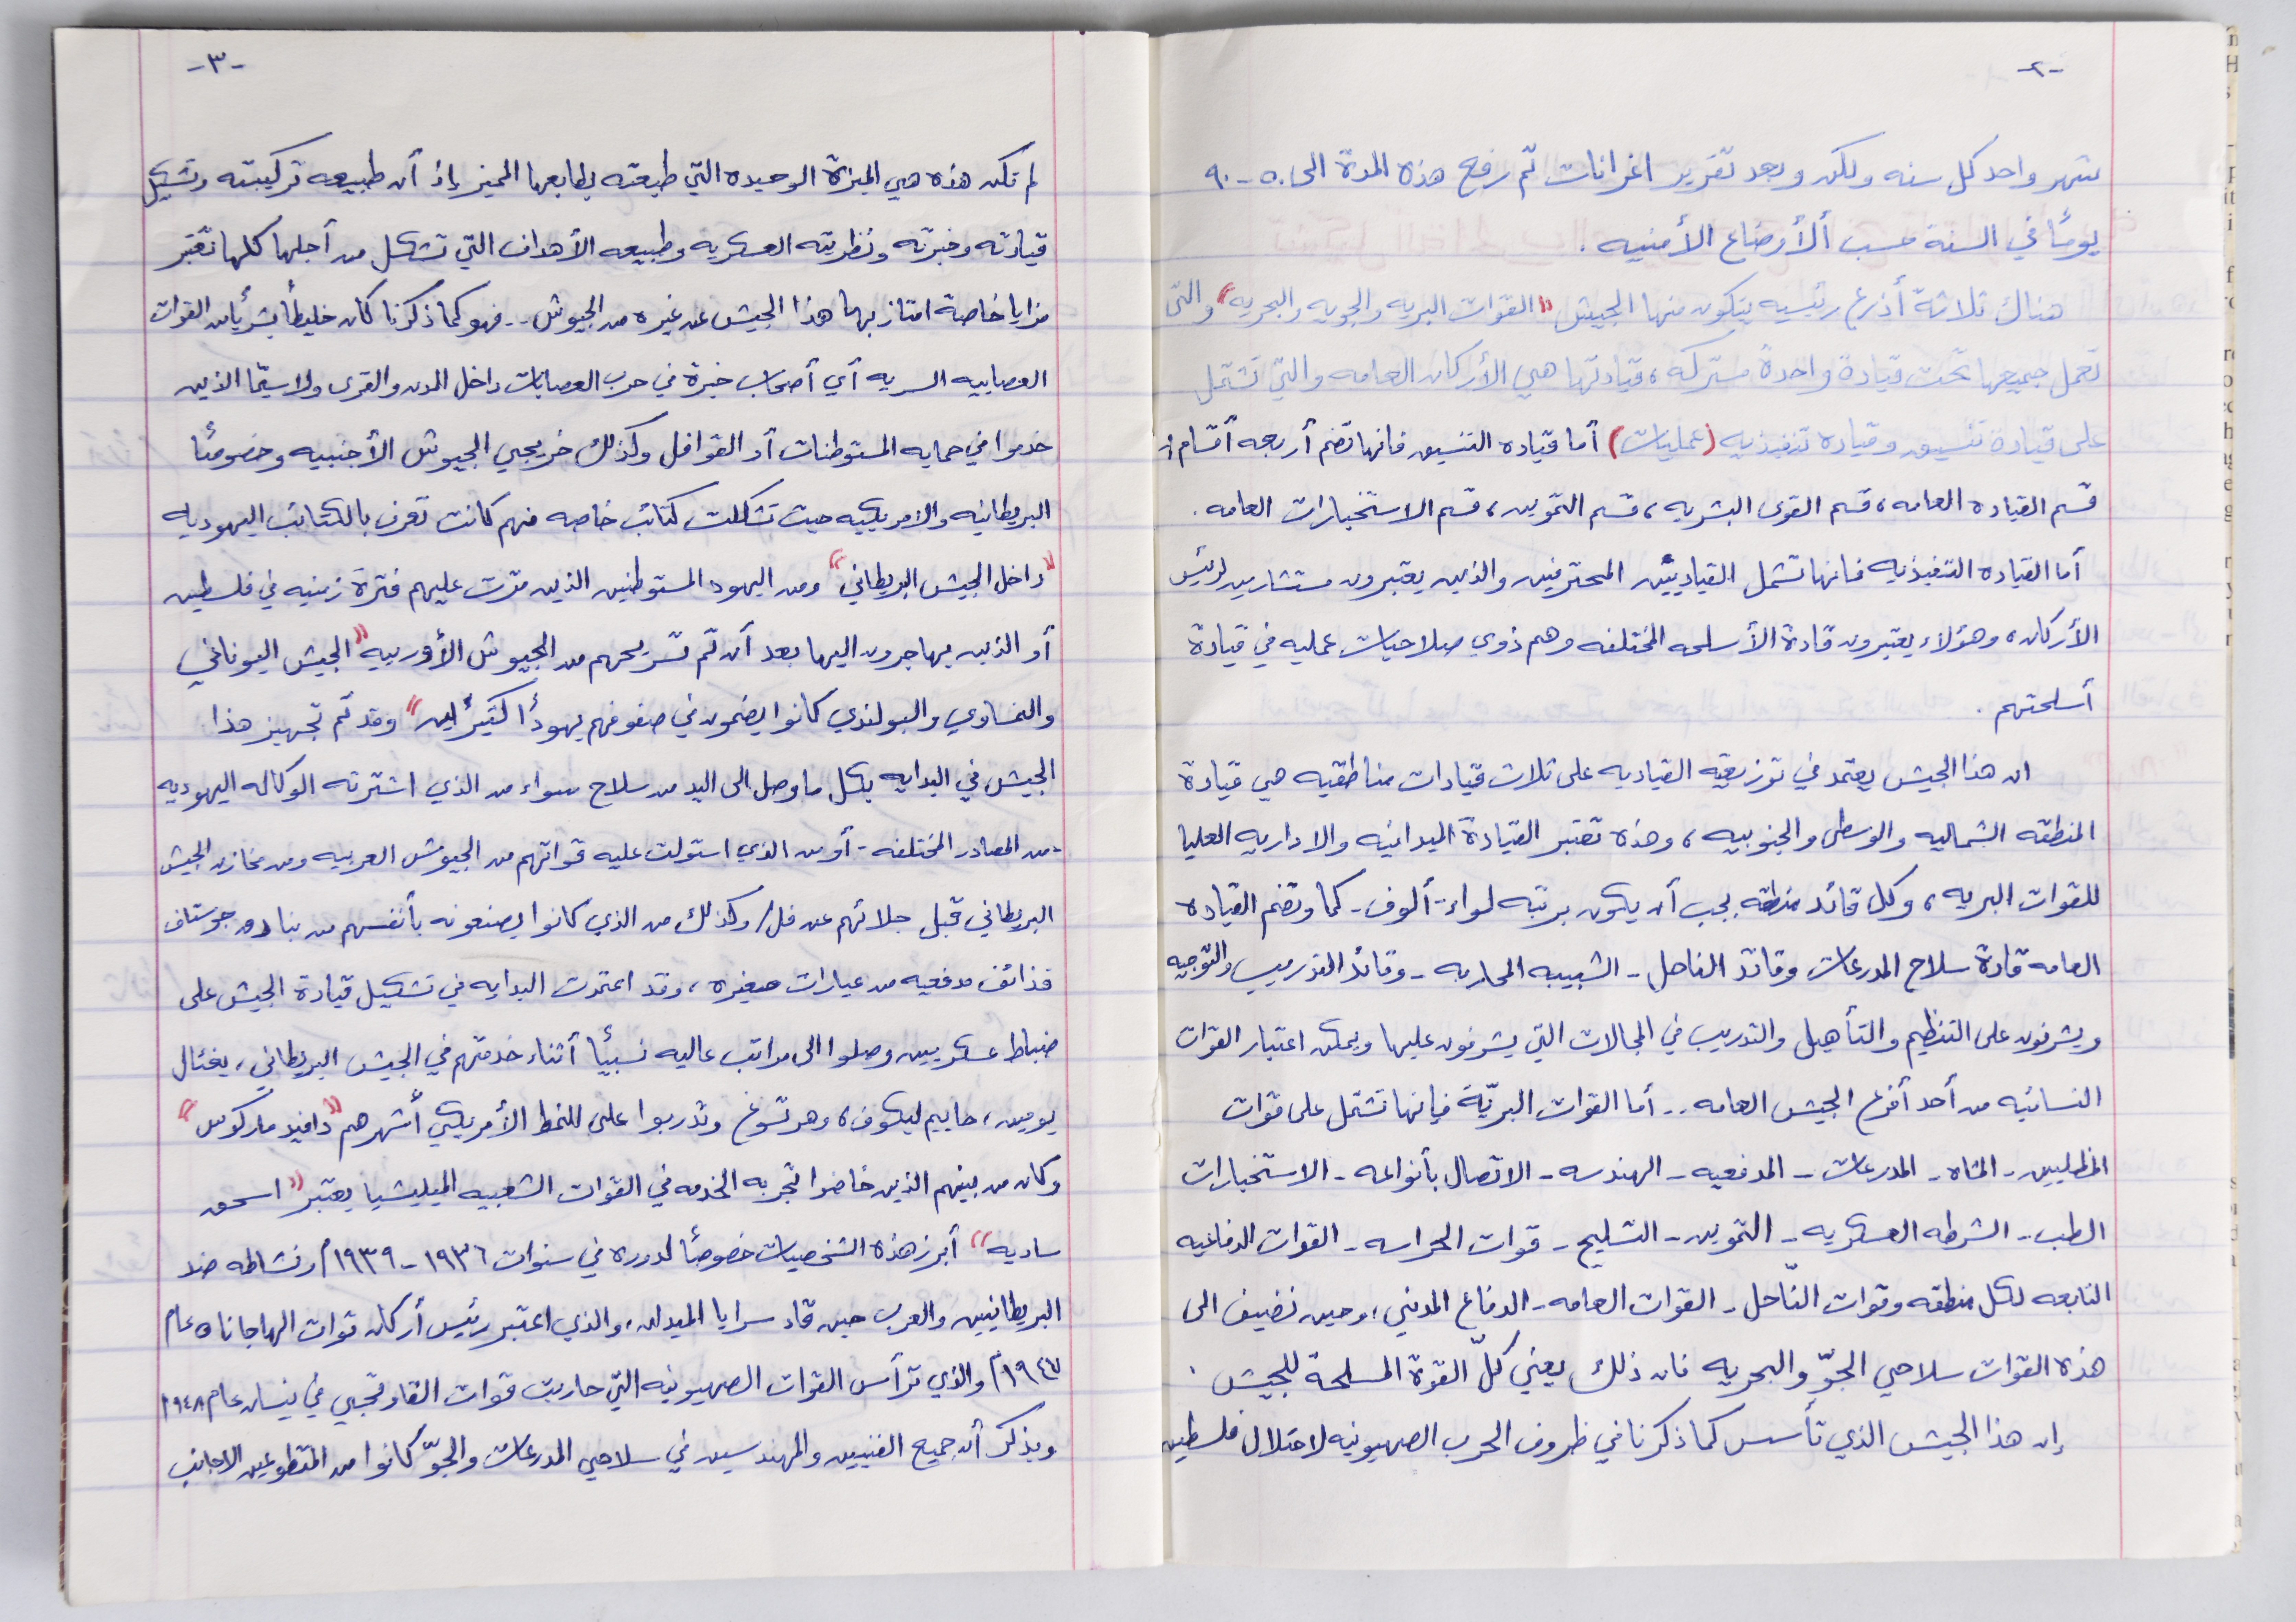 -٢-
شهر واحد كل سنه ولكن وبعد تقرير اغرانات تم رفع هذه المدة الى ٥٠ - ٩٠
يوماً في السنة حسب ألأوضاع الأمنيه .
هناك ثلاثة أذرع رئيسيه يتكون منها الجيش "القوات البريه والجويه والبحريه" والتي
تعمل جميعها تحت قيادة واحدة مشتركه ، قيادتها هي الأركان العامه والتي تشتمل
على قيادة تنسيق وقياده تنفيذيه (عمليات) أما قياده التنسيق فانها تضم أربعه أقسام :
قسم القياده العامه ، قسم القوى البشريه ، قسم التموين ، قسم الاستخبارات العامه .
أما القياده التنفيذيه فانها تشمل القياديين المحترفين والذين يعتبرون مستشارين لرئيس
الأركان ، وهؤلاء يعتبرون قادة الأسلحه المختلفه وهم ذوي صلاحيات عمليه في قيادة
أسلحتهم .
ان هذا الجيش يعتمد في توزيعه القياديه على ثلاث قيادات مناطقيه هي قيادة
المنطقه الشماليه والوسطى والجنوبيه ، وهذه تعتبر القيادة الميدانيه والاداريه العليا
للقوات البريه ، وكل قائد منطقه يجب أن يكون برتبه لواء - ألوف - كما وتضم القياده
العامه قادة سلاح المدرعات وقائد الناحل - الشبيبه المحاربه - وقائد التدريب والتوجيه
ويشرفون على التنظيم والتأهيل والتدريب في المجالات التي يشرفون عليها ويمكن اعتبار القوات
النسائيه من أحد أفرع الجيش العامه .. أما القوات البريّة فإنها تشتمل على قوات
المظليين - المشاه - المدرعات - المدفعيه - الهندسه - الاتصال بأنواعه - الاستخبارات
الطب - الشرطه العسكريه - التموين - التسليح - قوات الحراسه - القوات الدفاعيه
التابعه لكل منطقه وقوات النّاحل - القوات العامه - الدفاع المدني ، وحين نضيف الى
هذه القوات سلاحي الجوّ والبحريه فان ذلك يعني كلّ القوة المسلحة للجيش .
إن هذا الجيش الذي تأسس كما ذكرنا في ظروف الحرب الصهيونيه لاحتلال فلسطين
-٣-
لم تكن هذه هي الميزة الوحيده التي طبعته بطابعها المميز إذ أن طبيعه تركيبته وتشكيل
قيادته وخبرته ونظريته العسكريه وطبيعه الأهداف التي تشكل من أجلها كلها تعتبر
مزايا خاصة امتاز بها هذا الجيش عن غيره من الجيوش .. فهو كما ذكرنا كان خليطاً بشرياً من القوات
العصابيه السريه أي أصحاب خبرة في حرب العصابات داخل المدن والقرى ولا سيّما الذين
خدموا في حمايه المستوطنات أو القوافل وكذلك خريجي الجيوش الأجنبيه وخصوصاً
البريطانيه والامريكيه حيث تشكلت كتائب خاصه منهم كانت تعرف بالكتائب اليهوديه
"داخل الجيش البريطاني" ومن اليهود المستوطنين الذين مرّت عليهم فترة زمنيه في فلسطين
أو الذين يهاجرون اليها بعد أن تمّ تسريحهم من الجيوش الأوربيه "الجيش اليوناني
والنمساوي والبولندي كانوا يضمون في صفوفهم يهوداً كثيرين" وقد تم تجهيز هذا
الجيش في البدايه بكل ما وصل الى اليد من سلاح سواء من الذي اشترته الوكاله اليهوديه
- من المصادر المختلفه - أو من الذي استولت عليه قواتهم من الجيوش العربيه ومن مخازن الجيش
البريطاني قبل جلائهم عن فل/ وكذلك من الذي كانوا يصنعونه بأنفسهم من بنادق جوستاف
قذائف مدفعيه من عيارات صغيره ، وقد اعتمدت البدايه في تشكيل قيادة الجيش على
ضباط عسكريين وصلوا الى مراتب عاليه نسبياً أثناء خدمتهم في الجيش البريطاني ، يغئال
يومين ، حاييم ليكوف ، وهرتسوغ وتدربوا على النمط الأمريكي أشهرهم "دافيد ماركوس"
وكان من بينهم الذين خاضوا تجربه الخدمه في القوات الشعبيه الميليشيا يعتبر "اسحق
ساديه" أبرز هذة الشخصيات خصوصاً لدوره في سنوات ١٩٣٦ - ١٩٣٩م ونشاطه ضد
البريطانيين والعرب حين قاد سرايا الميدان ، والذي اعتبر رئيس أركان قوات الهاجاناه عام
١٩٤٧م والذي ترأس القوات الصهيونيه التي حاربت قوات القاوقجي في نيسان عام ١٩٤٨م
ويذكر أن جميع الفنيين والمهندسين في سلاحي المدرعات والجوّ كانوا من المتطوعين الاجانب